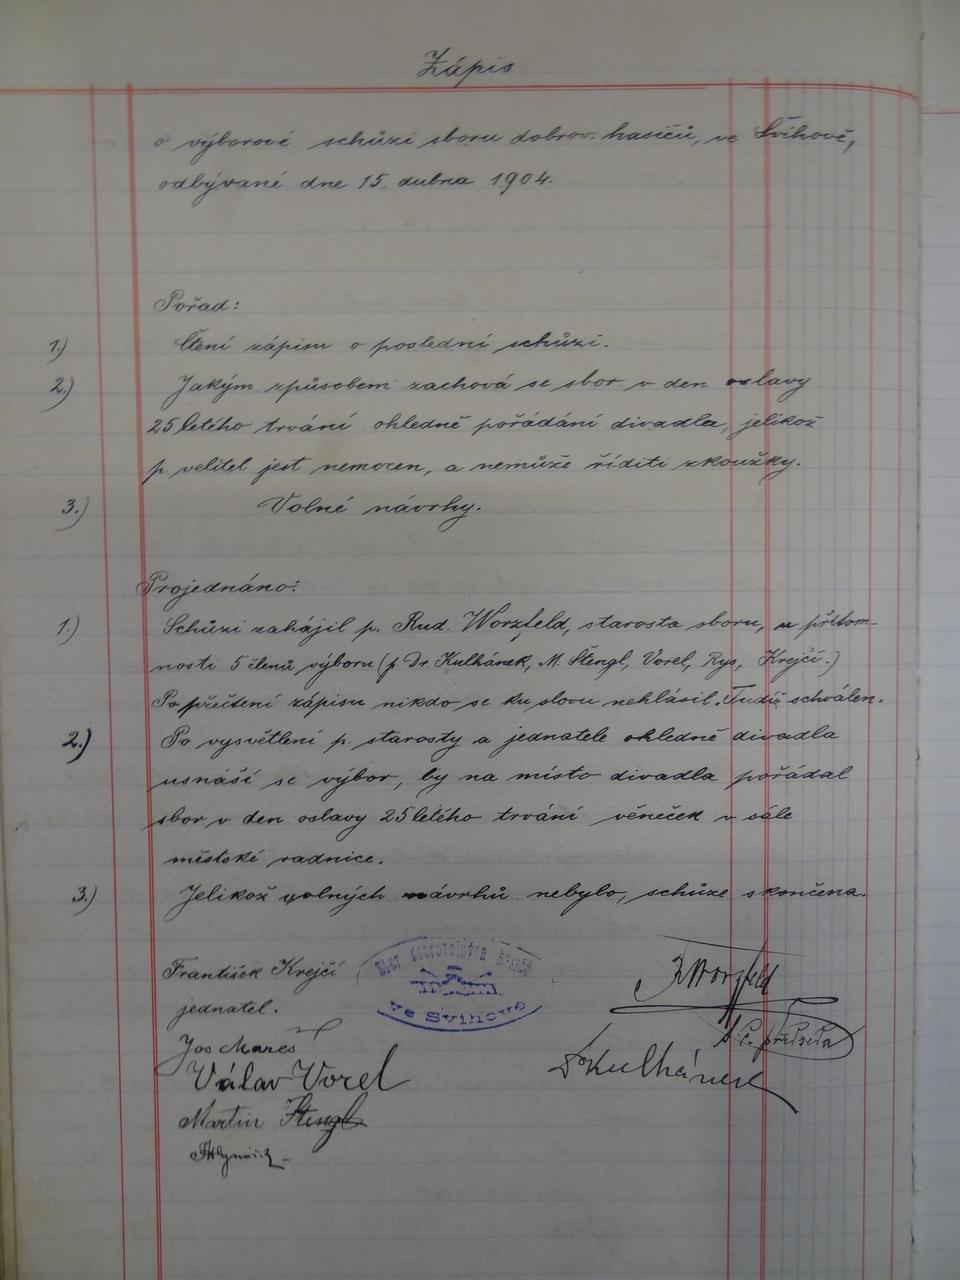 Zápis
o výborové schůzi sboru dobrov. hasičů, ve Švihově,
odbývané dne 15. dubna 1904.
Pořad:
1.) Čtení zápisu o poslední schůzi.
2.) Jakým způsobem zachová se sbor v den oslavy
25letého trvání ohledně pořádání divadla, jelikož
p. velitel jest nemocen, a nemůže říditi zkoužky.
3.) Volné návrhy.
Projednáno:
1.) Schůzi zahájil p. Rud. Worzfeld, starosta sboru, u přítom-
nosti 5 členů výboru (p. Dr. Kulhánek, M. Štengl, Vorel, Rys, Krejčí.)
Po přečtení zápisu nikdo se ku slovu nehlásil. Tudíž schválen.
2.) Po vysvětlení p. starosty a jednatele ohledně divadla
usnáší se výbor, by na místo divadla pořádal
sbor v den oslavy 25letého trvání věneček v sále
městské radnice.
3.) Jelikož volných návrhů nebylo, schůze skončena.
František Krejčí
jednatel.
Sbor dobrovolných hasičů
ve Švihově
RWorzfeld
předseda
Jos Mareš
Válav Vorel
Dr Kulhánek
Martin Štengl